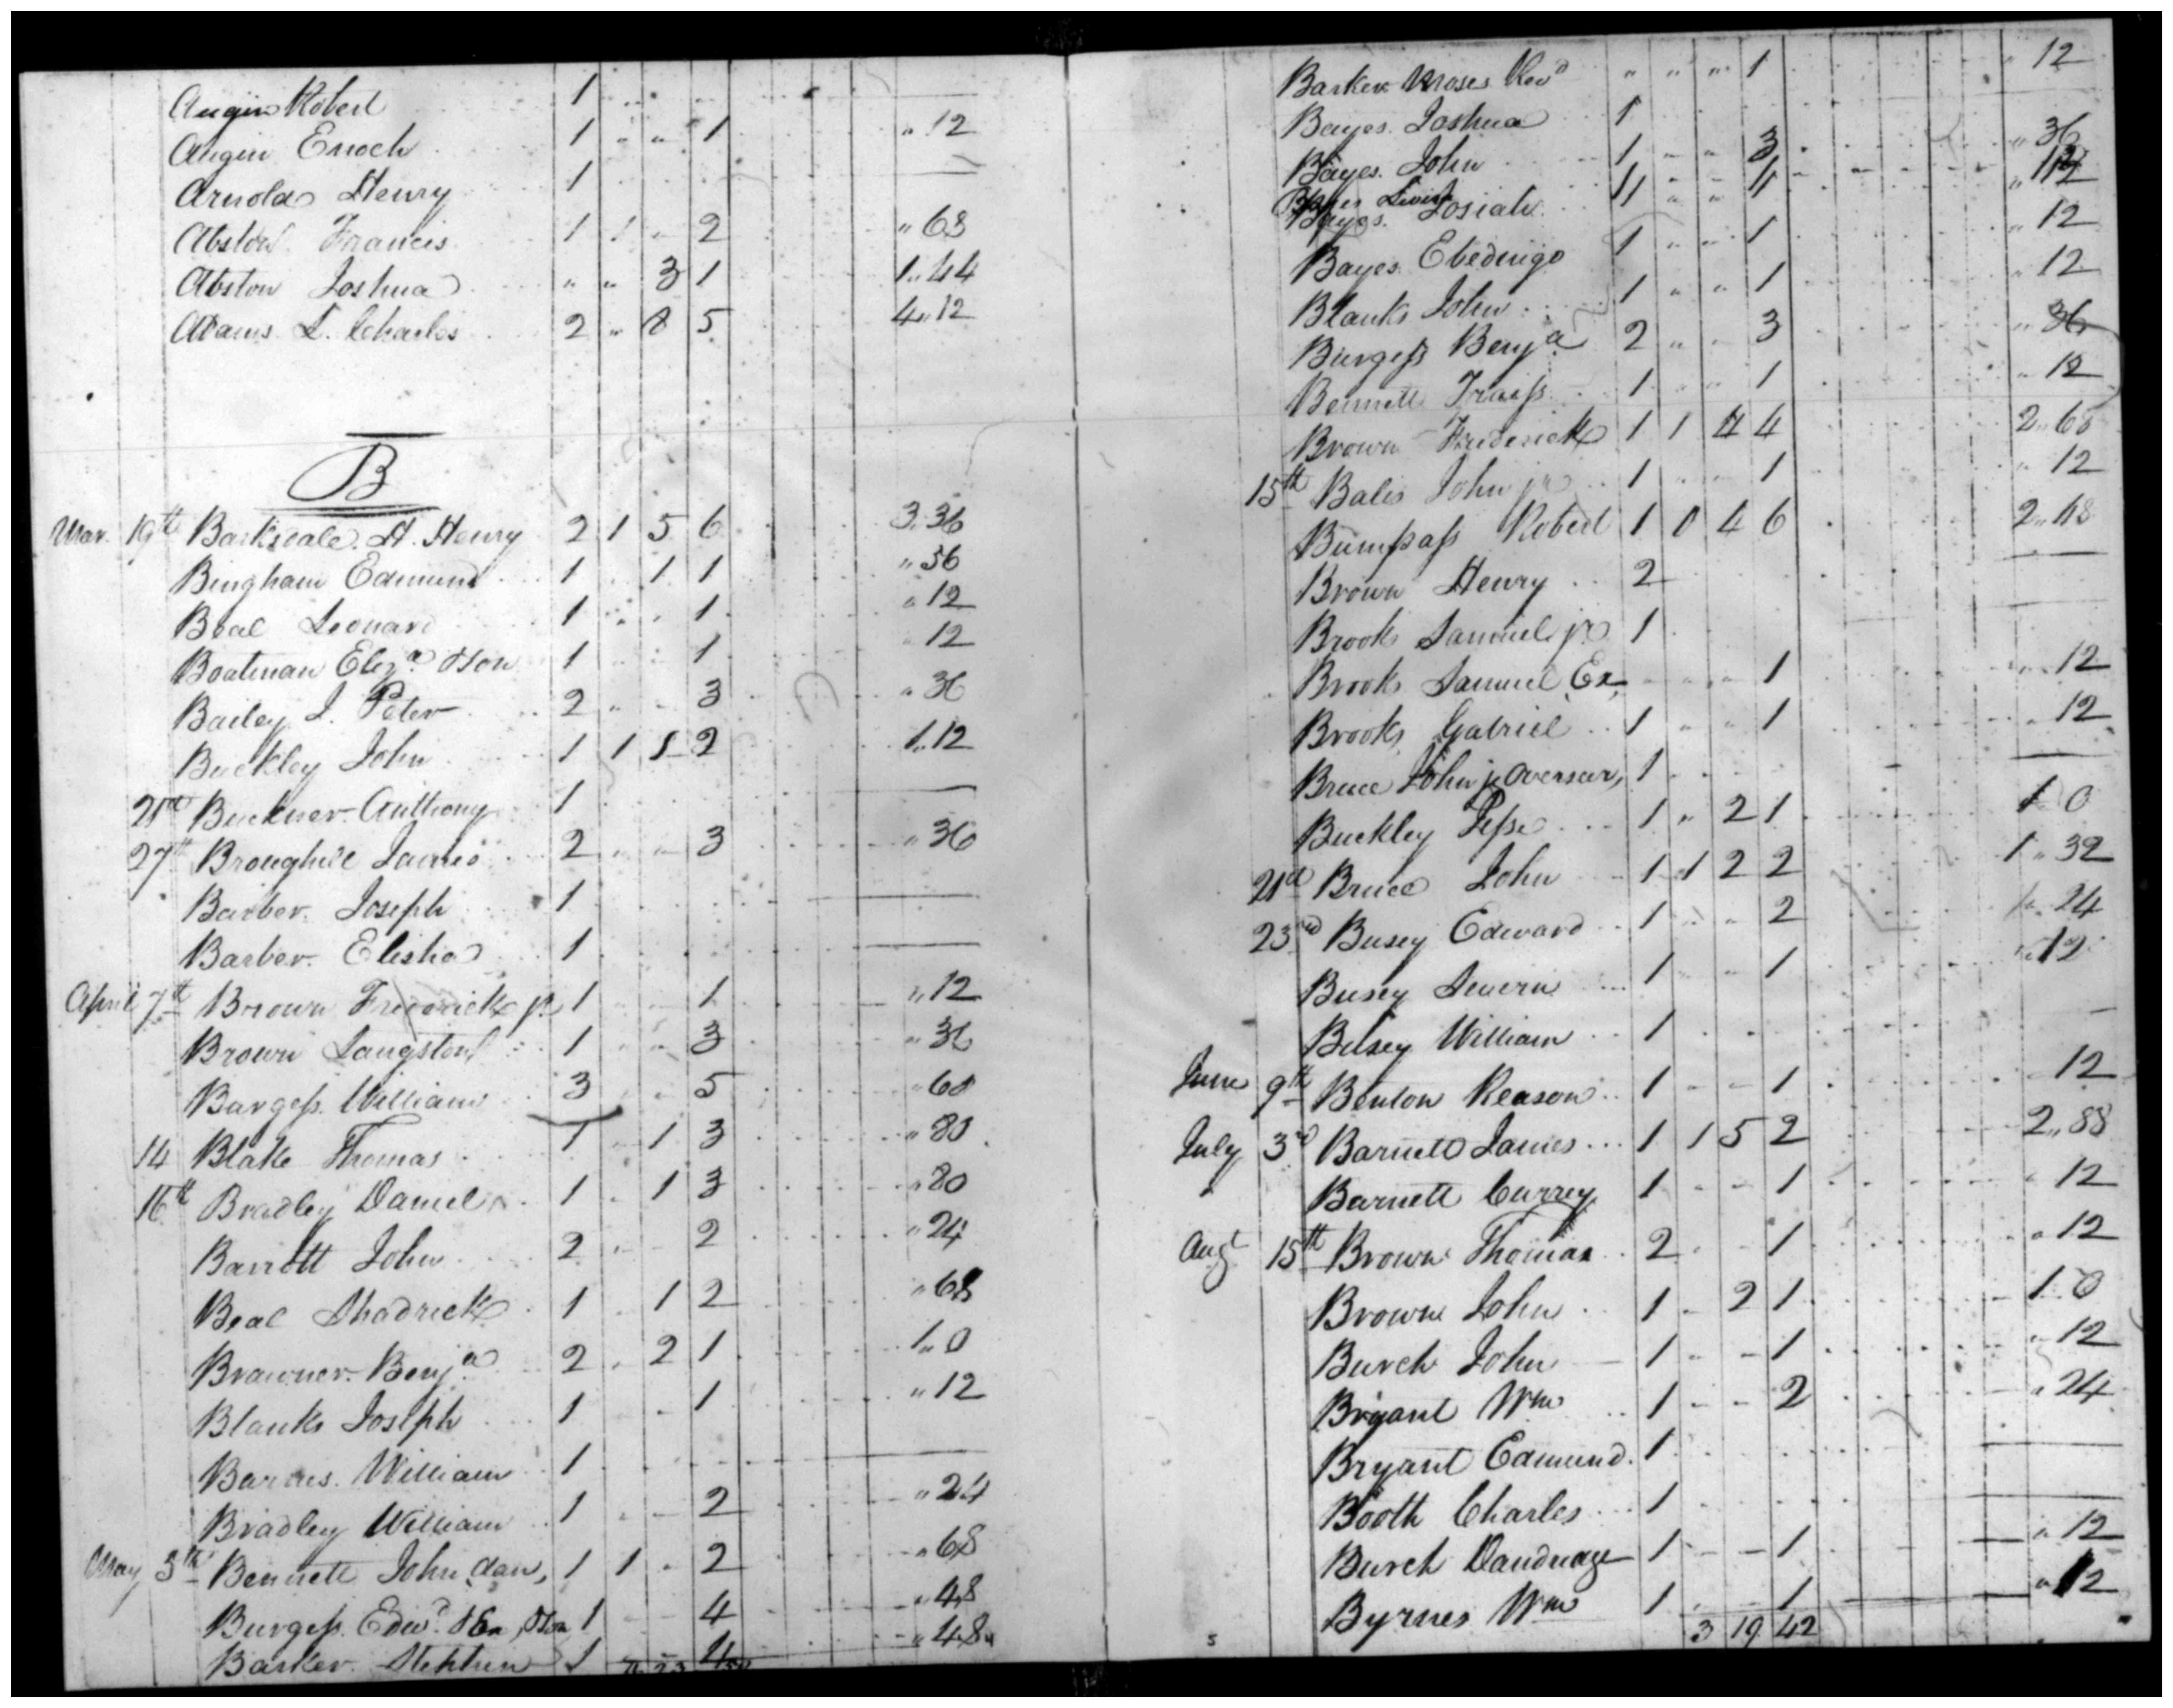 Angin Robert 1
Angin Enoch 1 " " 1 " 12
Arnold Henry 1
Abston Francis 1 1 - 2 " 68
Abston Joshua " " 3 1 1 " 44
Adams L. Charles 2 " 8 5 4 " 12
B
Mar. 19th Barksdale. H. Henry 2 1 5 6 3. 36
Bingham Edmund 1 . 1 1 " 56
Beal Leonard 1 . . 1 " 12
Boatman Eliza. & son 1 . . 1 " 12
Bailey J. Peter 2 " - 3 " 36
Buckley John 1 1 1 2 1 " 12
21st Buckner Anthony 1
27th Broughill James 2 3 " 36
Barber Joseph 1
Barber Elisha 1
April 7th Brown Frederick jr 1 1 " 12
Brown Langston 1 3 " 36
Burgess William 3 5 " 60
14 Blake Thomas 1 . 1 3 " 80
16th Bradley Daniel 1 . 1 3 " 80
Barrott John 2 - 2 " 24
Beal Shadrick 1 . 1 2 " 68
Brawner Benja 2 . 2 1 1 " 0
Blanks Joseph 1 . . 1 " 12
Barnes William 1
Bradley William 1 . - 2 " 24
May 5th Bennett John Dan, 1 1 . 2 " 68
Burgess Edwd. & son 1 - - 4 " 48
Barker Stephen 1 4 " 48
Barker Moses Revd " " " 1 12
Bayes Joshua 1
Bayes John 1 - - 3 " 36
Bayes Josiah 1 " " 1 " 12
Bayes Ebednigo 1 " " 1 " 12
Blanks John 1 " " 1 " 12
Burgess Benja 2 " - 3 " 36
Bennett Travis 1 " " 1 " 12
Brown Frederick 1 1 4 4 2 " 68
15th Bales John jr 1 " - 1 " 12
Bumpass Robert 1 0 4 6 2 " 48
Brown Henry 2
Brooks Samuel jr 1
Brooks Samuel Ex - - - 1 " 12
Brooks Gabriel 1 " " 1 " 12
Bruce John jr Overseer, 1
Buckley Jesse 1 " 2 1 1 0
21st Bruce John 1 1 2 2 1 " 32
23rd Busey Edward 1 - - 2 24
Busey Severn 1 - - 1 12
Busey William 1
June 9th Benton Reason 1 - - 1 12
July 3rd Barnett James 1 1 5 2 2 " 88
Barnett Currey 1 - - 1 " 12
Augt 15th Brown Thomas 2 . - 1 " 12
Brown John 1 - 2 1 1 . 0
Burch John 1 " - 1 " 12
Bryant Wm 1 - - 2 " 24
Bryant Edmund. 1
Booth Charles 1
Burch Dandridge 1 - - 1 " 12
Byrnes Wm 1 . - 1 " 12
3 19 42